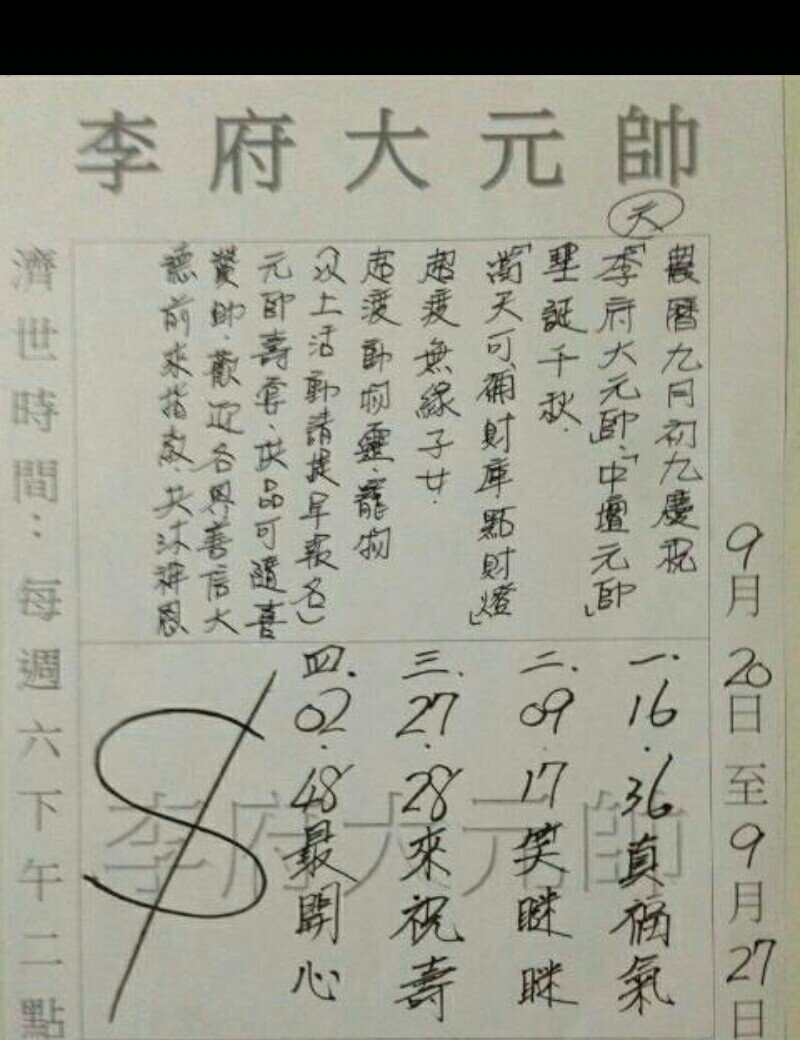 李府大元帥
天
農曆九月初九慶祝
「李府大元帥」「中壇元帥」
聖誕千秋.
「當天可補財庫點財燈」
超度無緣子女.
超渡動物靈.寵物
(以上活動請提早報名)
元帥壽宴.供品可隨喜
贊助.歡迎各界善信大
德前來指教.共沐神恩
9月20日至9月27日
一.16.36真福氣
二.09.17笑瞇瞇
三.27.28來祝壽
四.02.48最開心
李府大元帥
濟世時間:每週六下午二點